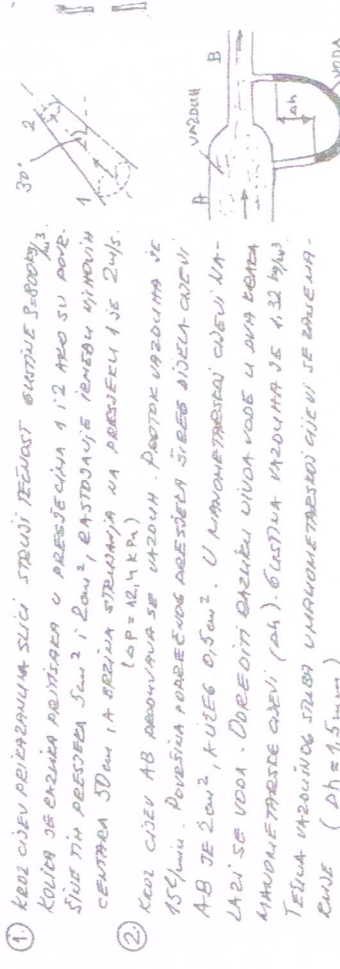 ① KROZ CIJEV PRIKAZANU NA SLICI STRUJI TEČNOST GUSTINE ρ=800 kg/m³
KOLIKA JE RAZLIKA PRITISAKA U PRESJECIMA 1 i 2 AKO SU POVR-
ŠINE TIH PRESJEKA 5cm² i 2cm², RASTOJANJE IZMEĐU NJIHOVIH
CENTARA 50 cm, A BRZINA STRUJANJA NA PRESJEKU 1 JE 2m/s.
(ΔP = 12,4 kPa)
② KROZ CIJEV AB PRODUVAVA SE VAZDUH. PROTOK VAZDUHA JE
15 l/min. POVRŠINA POPREČNOG PRESJEKA ŠIREG DIJELA CIJEVI
AB JE 2cm², A UŽEG 0,5cm². U MANOMETARSKOJ CIJEVI NA-
LAZI SE VODA. ODREDITI RAZLIKU NIVOA VODE U DVA KRAKA
MANOMETARSKE CIJEVI (Δh). GUSTINA VAZDUHA JE 1.32 kg/m³
TEŽINA VAZDUŠNOG STUBA U MANOMETARSKOJ CIJEVI SE ZANEMA-
RUJE (Δh = 1,5 mm)
30°
1
2
A
VAZDUH
B
Δh
VODA